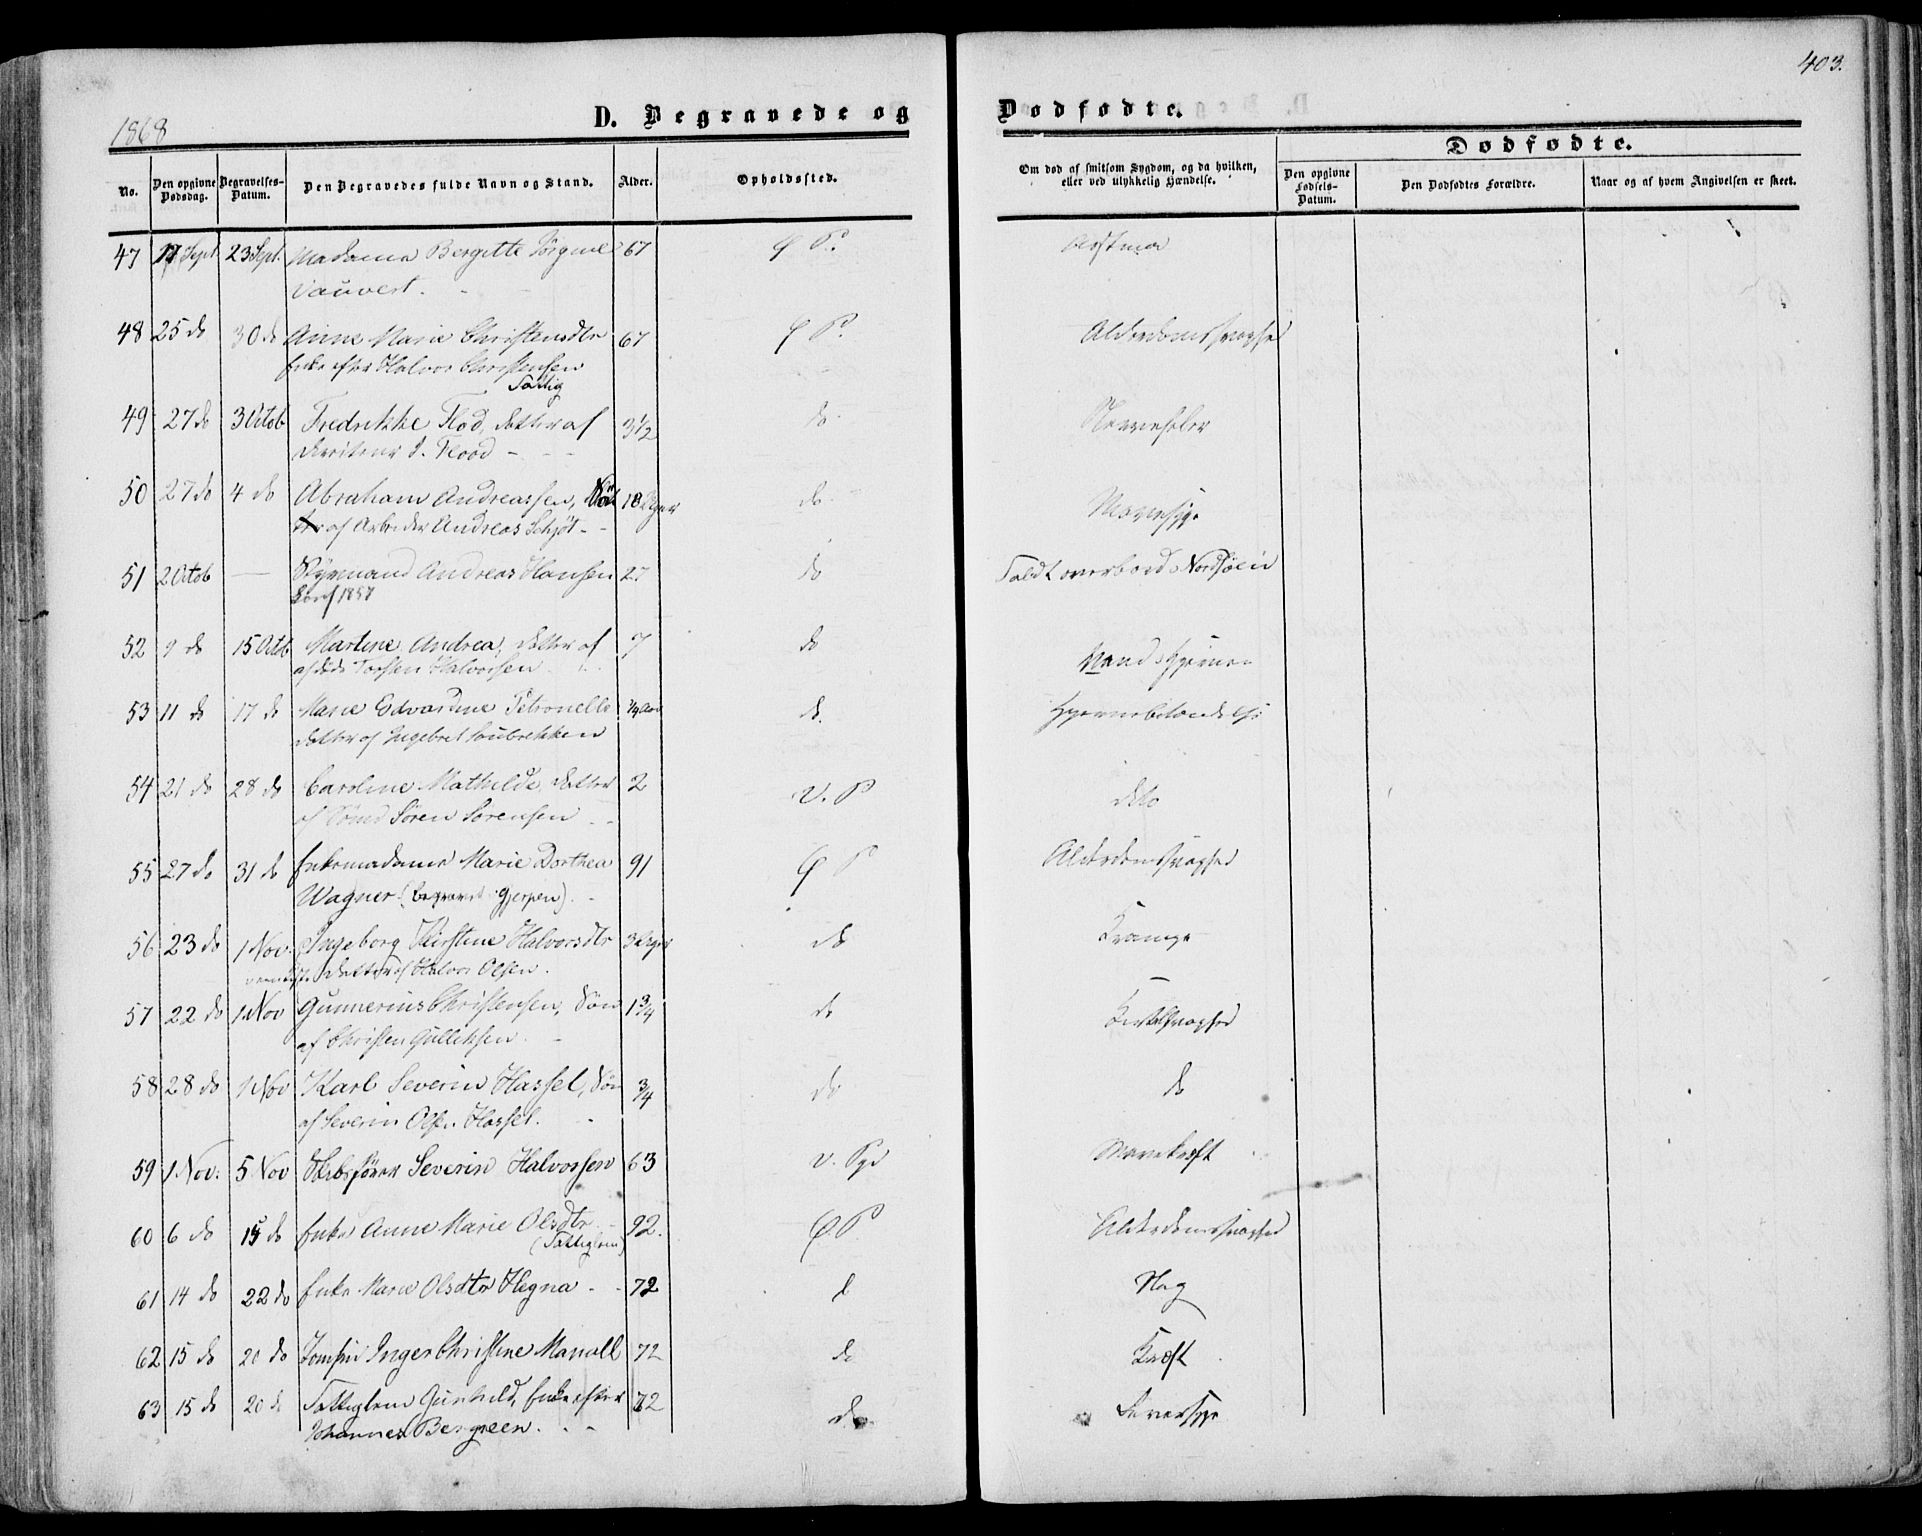 1868
D. Begravede og Dødfødte.
403.
No.
Den opgivne Dødsdag.
Begravelses-Datum.
Den Begravedes fulde Navn og Stand.
Alder.
Opholdssted.
Om død af smitsom Sygdom, og da hvilken, eller ved ulykkelig Hændelse.
Dødfødte.
Den opgivne Fødsels-Datum.
Den Dødfødtes Forældre.
Naar og af hvem Angivelsen er skeet.
47 17 Sept 23 Sept. Madame Bergitte Jørgine 67 Ø P. Astma
Vauvert.
48 25 do 30 do Anne Marie Christensdtr 67 Ø P. Alderdomssvaghed
Enke efter Halvor Christensen
Fattig
49 27 do 3 Octob Fredrikke Flod, Datter af 3 1/2 do Nervefeber
J. Flood
50 27 do 4 do Abraham Andreassen, Søn 18 Uger do Mavesyge
af Arbeider Andreas Schjøt
51 2 Octob — Styrmand Andreas Hansen 27 do Faldt overbord i Nordsøen
1857
52 9 do 15 Octb Martine Andrea, Datter af 7 do Vand i Hjernen
afdøde Torsten Halvorsen
53 11 do 17 do Marie Edvardine Petronelle 3/4 Aar do. Hjernebetændelse
Datter af Ingebret
54 21 do 28 do Caroline Mathilde, Datter 2 V. P dito
af Sømd Søren Sørensen
55 27 do 31 do Enkemadame Marie Dorthea 91 Ø P Alderdomssvaghed
Wagner (begravet i Gjerpen)
56 23 do 1 Nov. Ingeborg Kirstine Halvorsdtr 3 Uger do Krampe
Datter af Halvor Olsen.
57 22 do 1 Nov Gunnerius Christensen, Søn 1 3/4 do Kirtelsvaghed
af Christen Gulliksen.
58 28 do 1 Nov Karl Severin Hassel, Søn 3/4 do do
af Severin Olsen Hassel.
59 1. Nov. 5 Nov Skibsfører Severin Halvorsen 63 V. Mavekræft
60 6 do 15 do Enke Anne Marie Olsdtr 92. Ø. P Alderdomssvaghed
(Fattiglem)
61 14 do 22 do Enke Marie Olsdtr Hegna 72 d Slag
62 15 do 20 do Jomfru Inger Christine Manall 72 do Kræft
63 15 do 20 do Fattiglem Gunhild, Enke efter 72 do Leversyge
Johannes Bergreen.